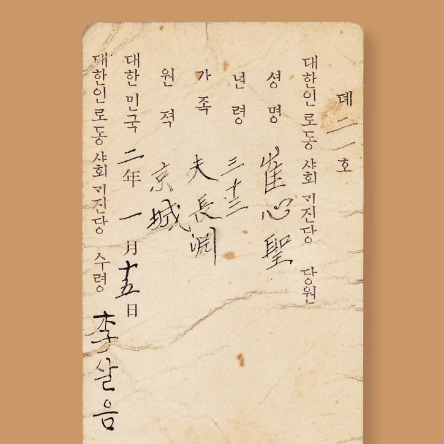 뎨 二一 호
대한인 로동 샤회 기진당 당원
셩명 崔心聖
년령 三十三
가족 夫 長淵
원젹 京城
대한민국 二年 一月 十五日
대한인 로동 샤회 기진당 수령 李살음